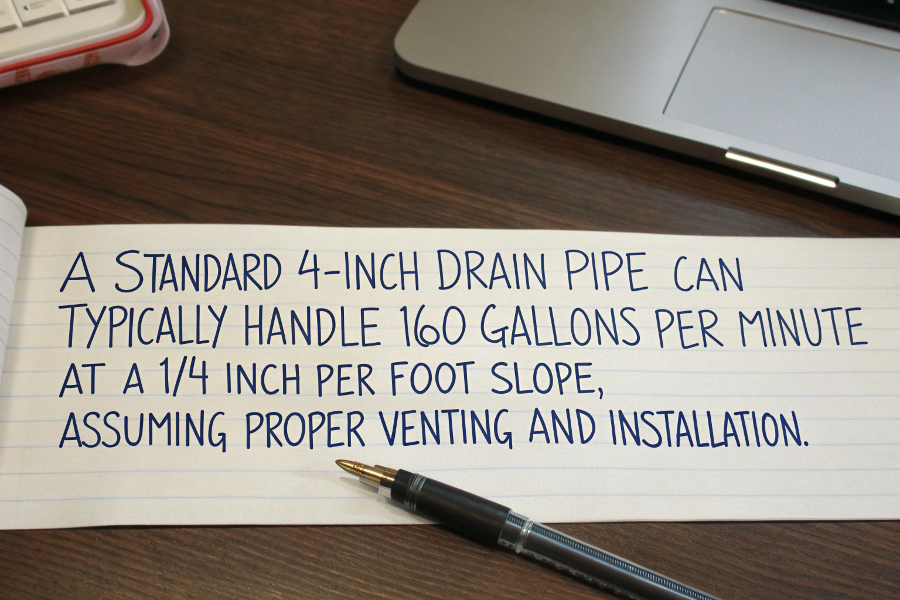 A STANDARD 4-INCH DRAIN PIPE CAN
TYPICALLY HANDLE 160 GALLONS PER MINUTE
AT A 1/4 INCH PER FOOT SLOPE,
ASSUMING PROPER VENTING AND INSTALLATION.